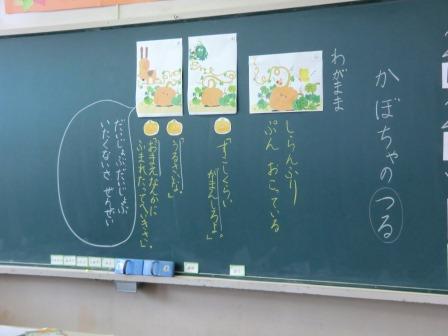 かぼちゃの つる
わがまま
しらんぷり
ぷん おこっている
「すこしくらい
がまんしろよ」
「うるさいな」
「おまえなんかに
ふまれたってへいきさ」
だいじょぶだいじょぶ
いたくないさ